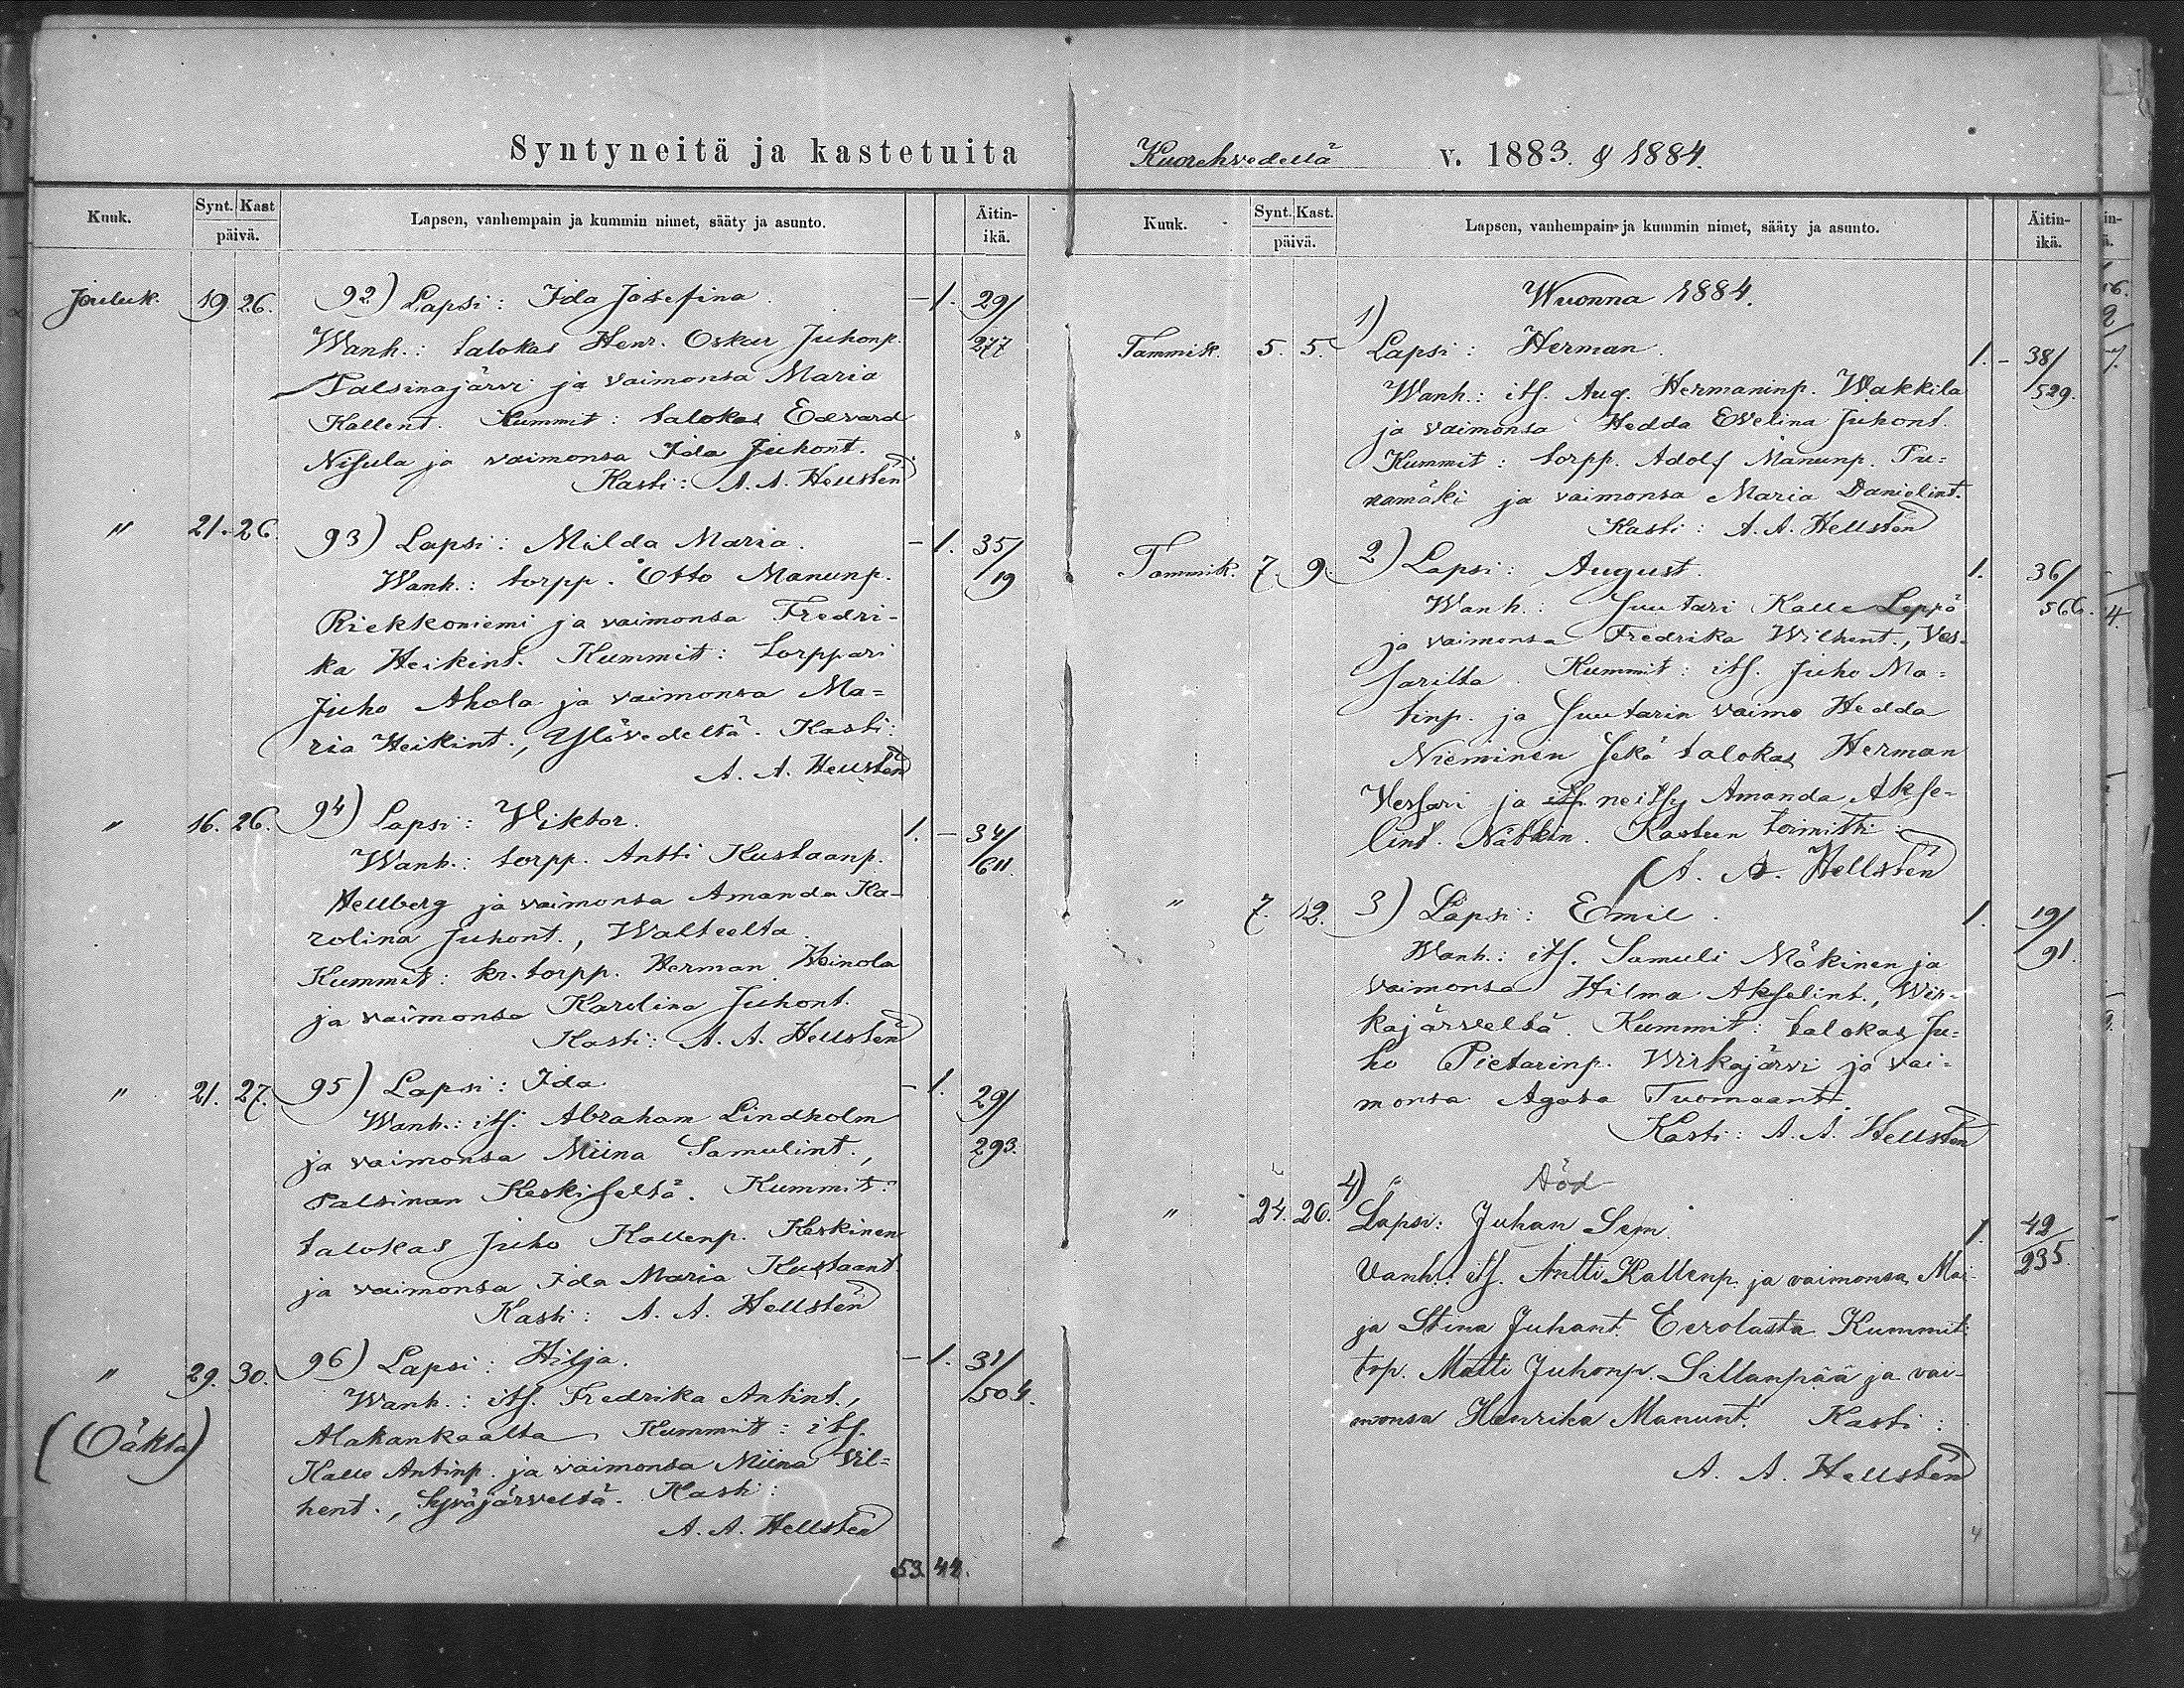 Syntyneitä ja kastetuita Kuorehvedellä v. 1883. & 1884.
Kuuk. Synt. Kast päivä. Lapsen, vanhempain ja kummin nimet, sääty ja asunto. Äitin-ikä.
Jouluk. 19. 26. 92) Lapsi: Ida Josefina. – 1. 29/
Wanh.: talokas Henr. Oskar Juhonp. 277
Palsinajärvi ja vaimonsa Maria
Kallent. Kummit: talokas Edvard
Nisula ja vaimonsa Ida Juhont.
Kasti: A. A. Hellstén
" 21. 26. 93) Lapsi: Milda Maria. – 1. 35/
Wanh.: torpp. Otto Manunp. 19
Riekkoniemi ja vaimonsa Fredri-
ka Heikint. Kummit: torppari
Juho Ahola ja vaimonsa Ma=
ria Heikint., Ylövedeltä. Kasti:
A. A. Hellstén
" 16. 26. 94) Lapsi: Viktor. 1. – 34/
Wanh.: torpp. Antti Kustaanp. 611.
Hellberg ja vaimonsa Amanda Ka-
rolina Juhont., Walteelta.
Kummit: kr. torpp. Herman Heinola
ja vaimonsa Karolina Juhont.
Kasti: A. A. Hellstén
" 21. 27. 95) Lapsi: Ida – 1. 29/
Wanh.: its. Abraham Lindholm
ja vaimonsa Miina Samulint., 293.
Palsinan Keskiseltä. Kummit:
talokas Juho Kallenp. Keskinen
ja vaimonsa Ida Maria Kustaant.
Kasti: A. A. Hellstén
" 29. 30. 96) Lapsi: Hilja. – 1. 31/
Wanh.: its. Fredrika Antint., 504.
(Oäkta) Alakankaalta Kummit: its.
Kalle Antinp. ja vaimonsa Miina Vil=
hent., Syväjärveltä. Kasti:
A. A. Hellstén
53. 44.
Kuuk. Synt. Kast. päivä. Lapsen, vanhempain ja kummin nimet, sääty ja asunto. Äitin-ikä.
Wuonna 1884.
1)
Tammik. 5. 5. Lapsi: Herman. 1. – 38/
Wanh.: its. Aug. Hermaninp. Wakkila 529.
ja vaimonsa Hedda Evelina Juhont.
Kummit: torpp. Adolf Manunp. Pu=
namäki ja vaimonsa Maria Danielint.
Kasti: A. A. Hellstén
Tammik. 7. 9. 2) Lapsi: August. 1. 36/
Wanh.: Suutari Kalle Leppä 566.
ja vaimonsa Fredrika Wilhent., Ves-
sarilta. Kummit: its. Juho Ma=
tinp. ja Suutarin vaimo Hedda
Nieminen Sekä talokas Herman
Vessari ja neitsy Amanda Akse-
lint. Nätkin. Kasteen toimitti:
A. A. Hellstén
" 7. 12. 3) Lapsi: Emil. 1. 19/
Wanh.: its. Samuli Mäkinen ja 91.
vaimonsa Hilma Akselint., Wir-
kajärveltä. Kummit: talokas Ju=
ho Pietarinp. Wirkajärvi ja vai=
monsa Agata Tuomaant.
Kasti: A. A. Hellstén
4) Död
" 24. 26. Lapsi: Juhan Sem. 1. 42
Vanh.: its. Antti Kallenp. ja vaimonsa Mai- 235
ja Stina Juhant. Eerolasta Kummit:
trp. Matti Juhonp. Sillanpää ja vai-
monsa Henrika Manunt. Kasti:
A. A. Hellstén
4